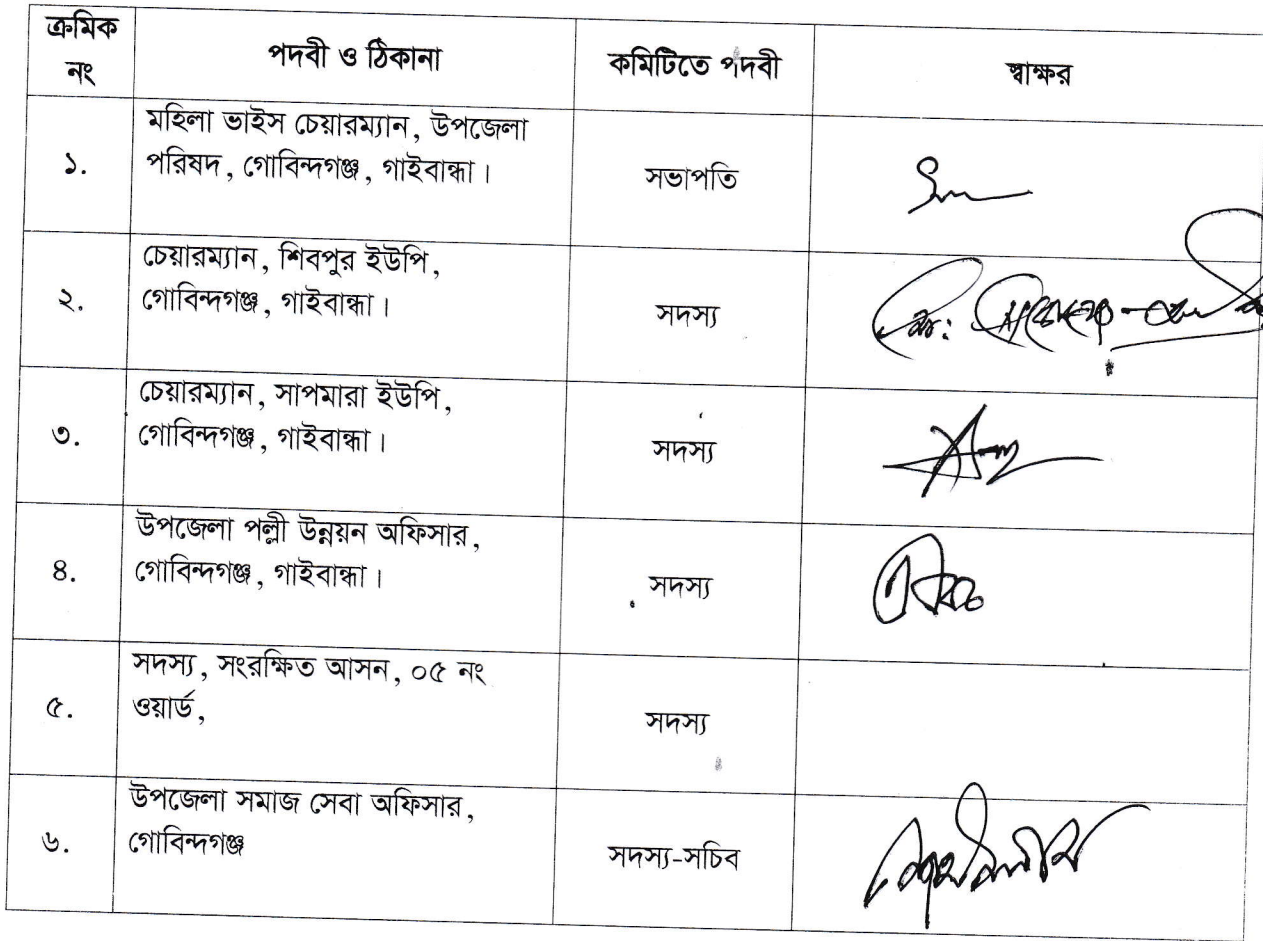 ক্রমিক
নং
পদবী ও ঠিকানা
কমিটিতে পদবী
স্বাক্ষর
১.
মহিলা ভাইস চেয়ারম্যান, উপজেলা
পরিষদ, গোবিন্দগঞ্জ, গাইবান্ধা।
সভাপতি
২.
চেয়ারম্যান, শিবপুর ইউপি,
গোবিন্দগঞ্জ, গাইবান্ধা।
সদস্য
৩.
চেয়ারম্যান, সাপমারা ইউপি,
গোবিন্দগঞ্জ, গাইবান্ধা।
সদস্য
৪.
উপজেলা পল্লী উন্নয়ন অফিসার,
গোবিন্দগঞ্জ, গাইবান্ধা।
সদস্য
৫.
সদস্য, সংরক্ষিত আসন, ০৫ নং
ওয়ার্ড,
সদস্য
৬.
উপজেলা সমাজ সেবা অফিসার,
গোবিন্দগঞ্জ
সদস্য-সচিব